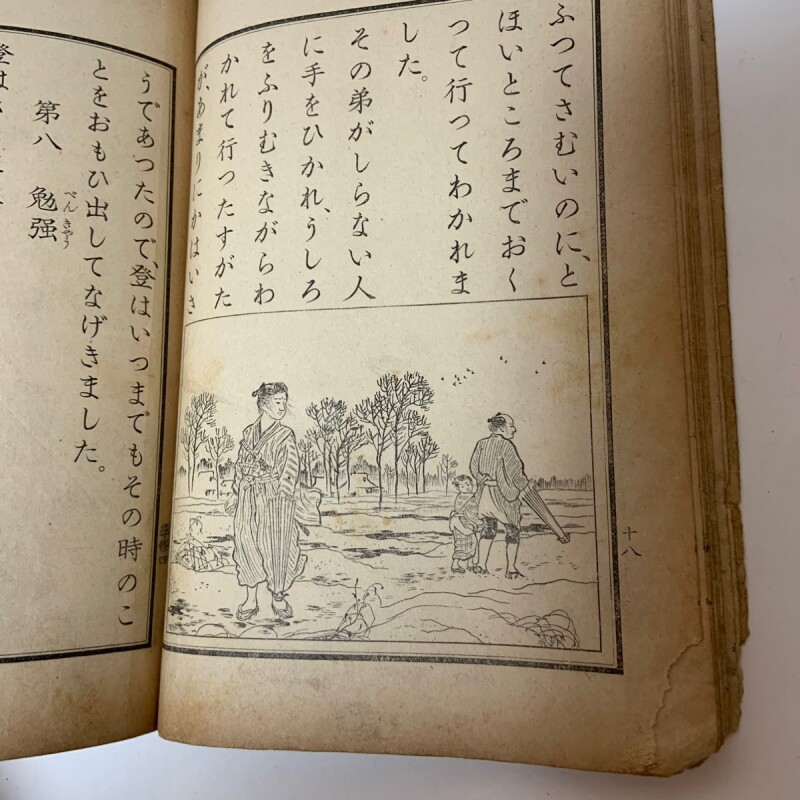 ふつてさむいのに、と
ほいところまでおく
つて行つてわかれま
した。
その弟がしらない人
に手をひかれ、うしろ
をふりむきながらわ
かれて行つたすがた
が、あまりにかはいさ
十八
うであつたので、登はいつまでもその時のこ
とをおもひ出してなげきました。
第八 勉强
べんきやう
登は